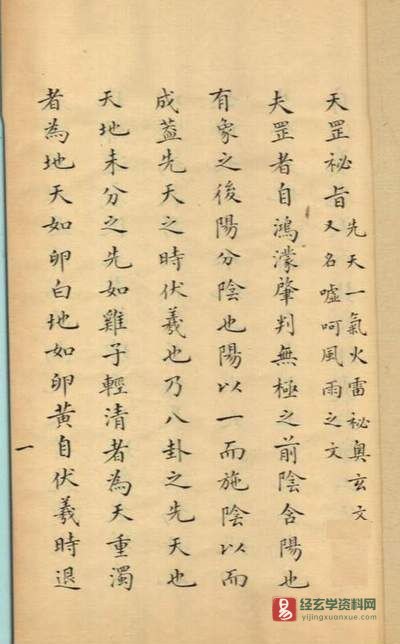 天罡祕旨
先天一氣火雷祕奧玄文
又名噓呵風雨之文
夫罡者自鴻濛肇判無極之前陰含陽也
有象之後陽分陰也陽以一而施陰以而
成蓋先天之時伏羲也乃八卦之先天也
天地未分之先如雞子輕清者為天重濁
者為地天如卵白地如卵黃自伏羲時退
一
易 经玄学资料网
yijingxuanxue.com